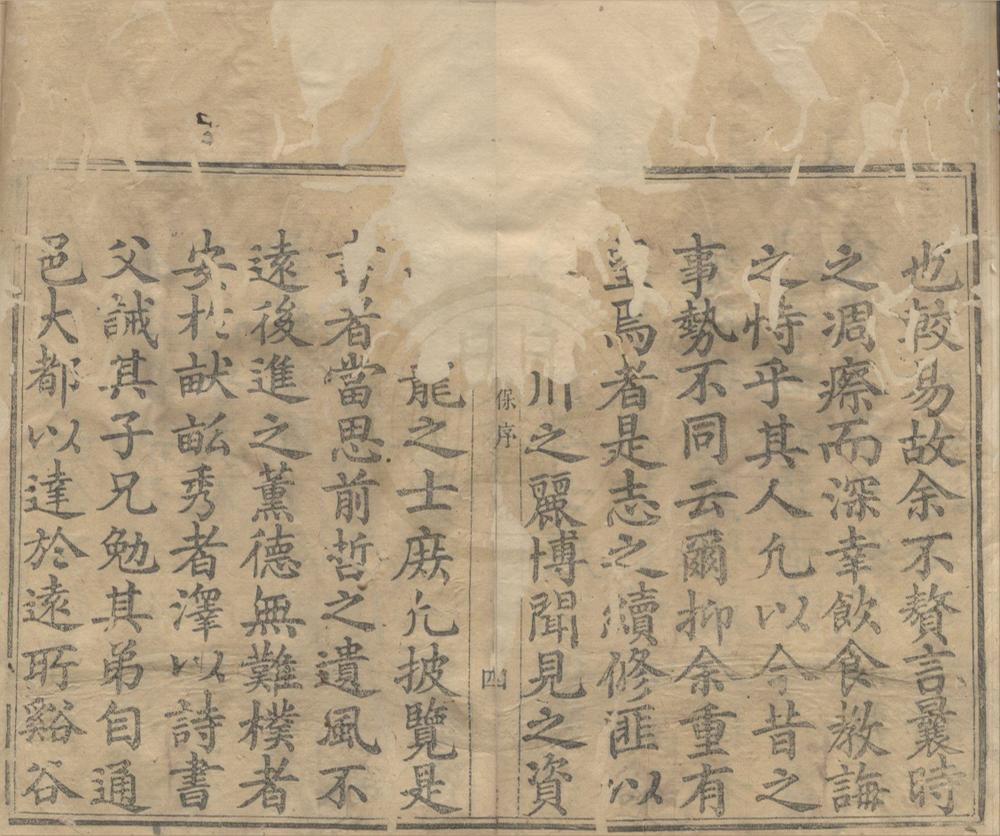 也較易故余不贅言曩時
之凋瘵而深幸飲食教誨
之恃乎其人凢以今昔之
事勢不同云爾抑余重有
望焉者是志之續修匪以
川之麗博聞見之資
保序
四
龍之士庶凢披覽是
書者當思前哲之遺風不
遠後進之薰德無難樸者
安於畎畝秀者澤以詩書
父誡其子兄勉其弟自通
邑大都以達於遠郊谿谷